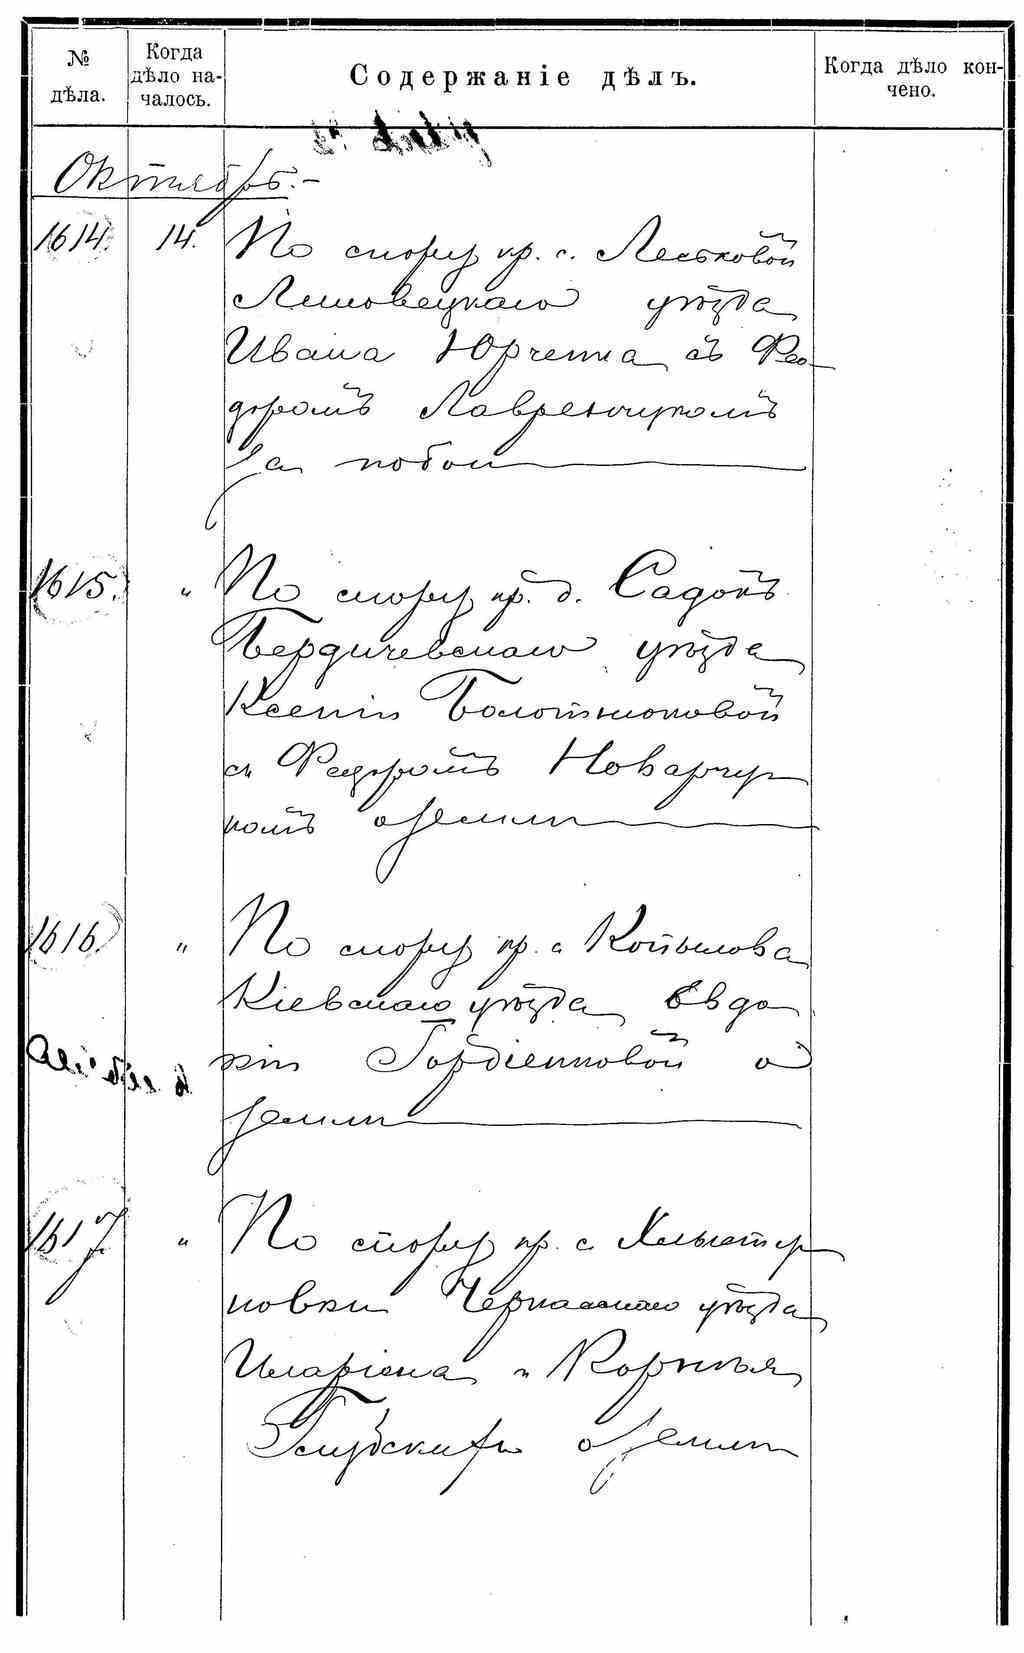 № дѣла.
Когда дѣло на-
чалось.
Содержаніе дѣлъ.
Когда дѣло кон-
чено.
Октябрь.-
1614. 14. По спору кр. с. Леськовой
Липовецкаго уѣзда
Ивана Юрченка съ Фео-
доромъ Лавренчукомъ
за побои
1615. " По спору кр. д. Садокъ
Бердичевскаго уѣзда
Ксеніи Болотнюковой
съ Федоромъ
комъ о земли
1616. " По спору кр. с. Копылова
Кіевскаго уѣзда Евдо
кіи Гордіенковой о
земли
1617. " По спору кр. с.
новки Черкасскаго уѣзда
Иларіона и Корнилія
о земли